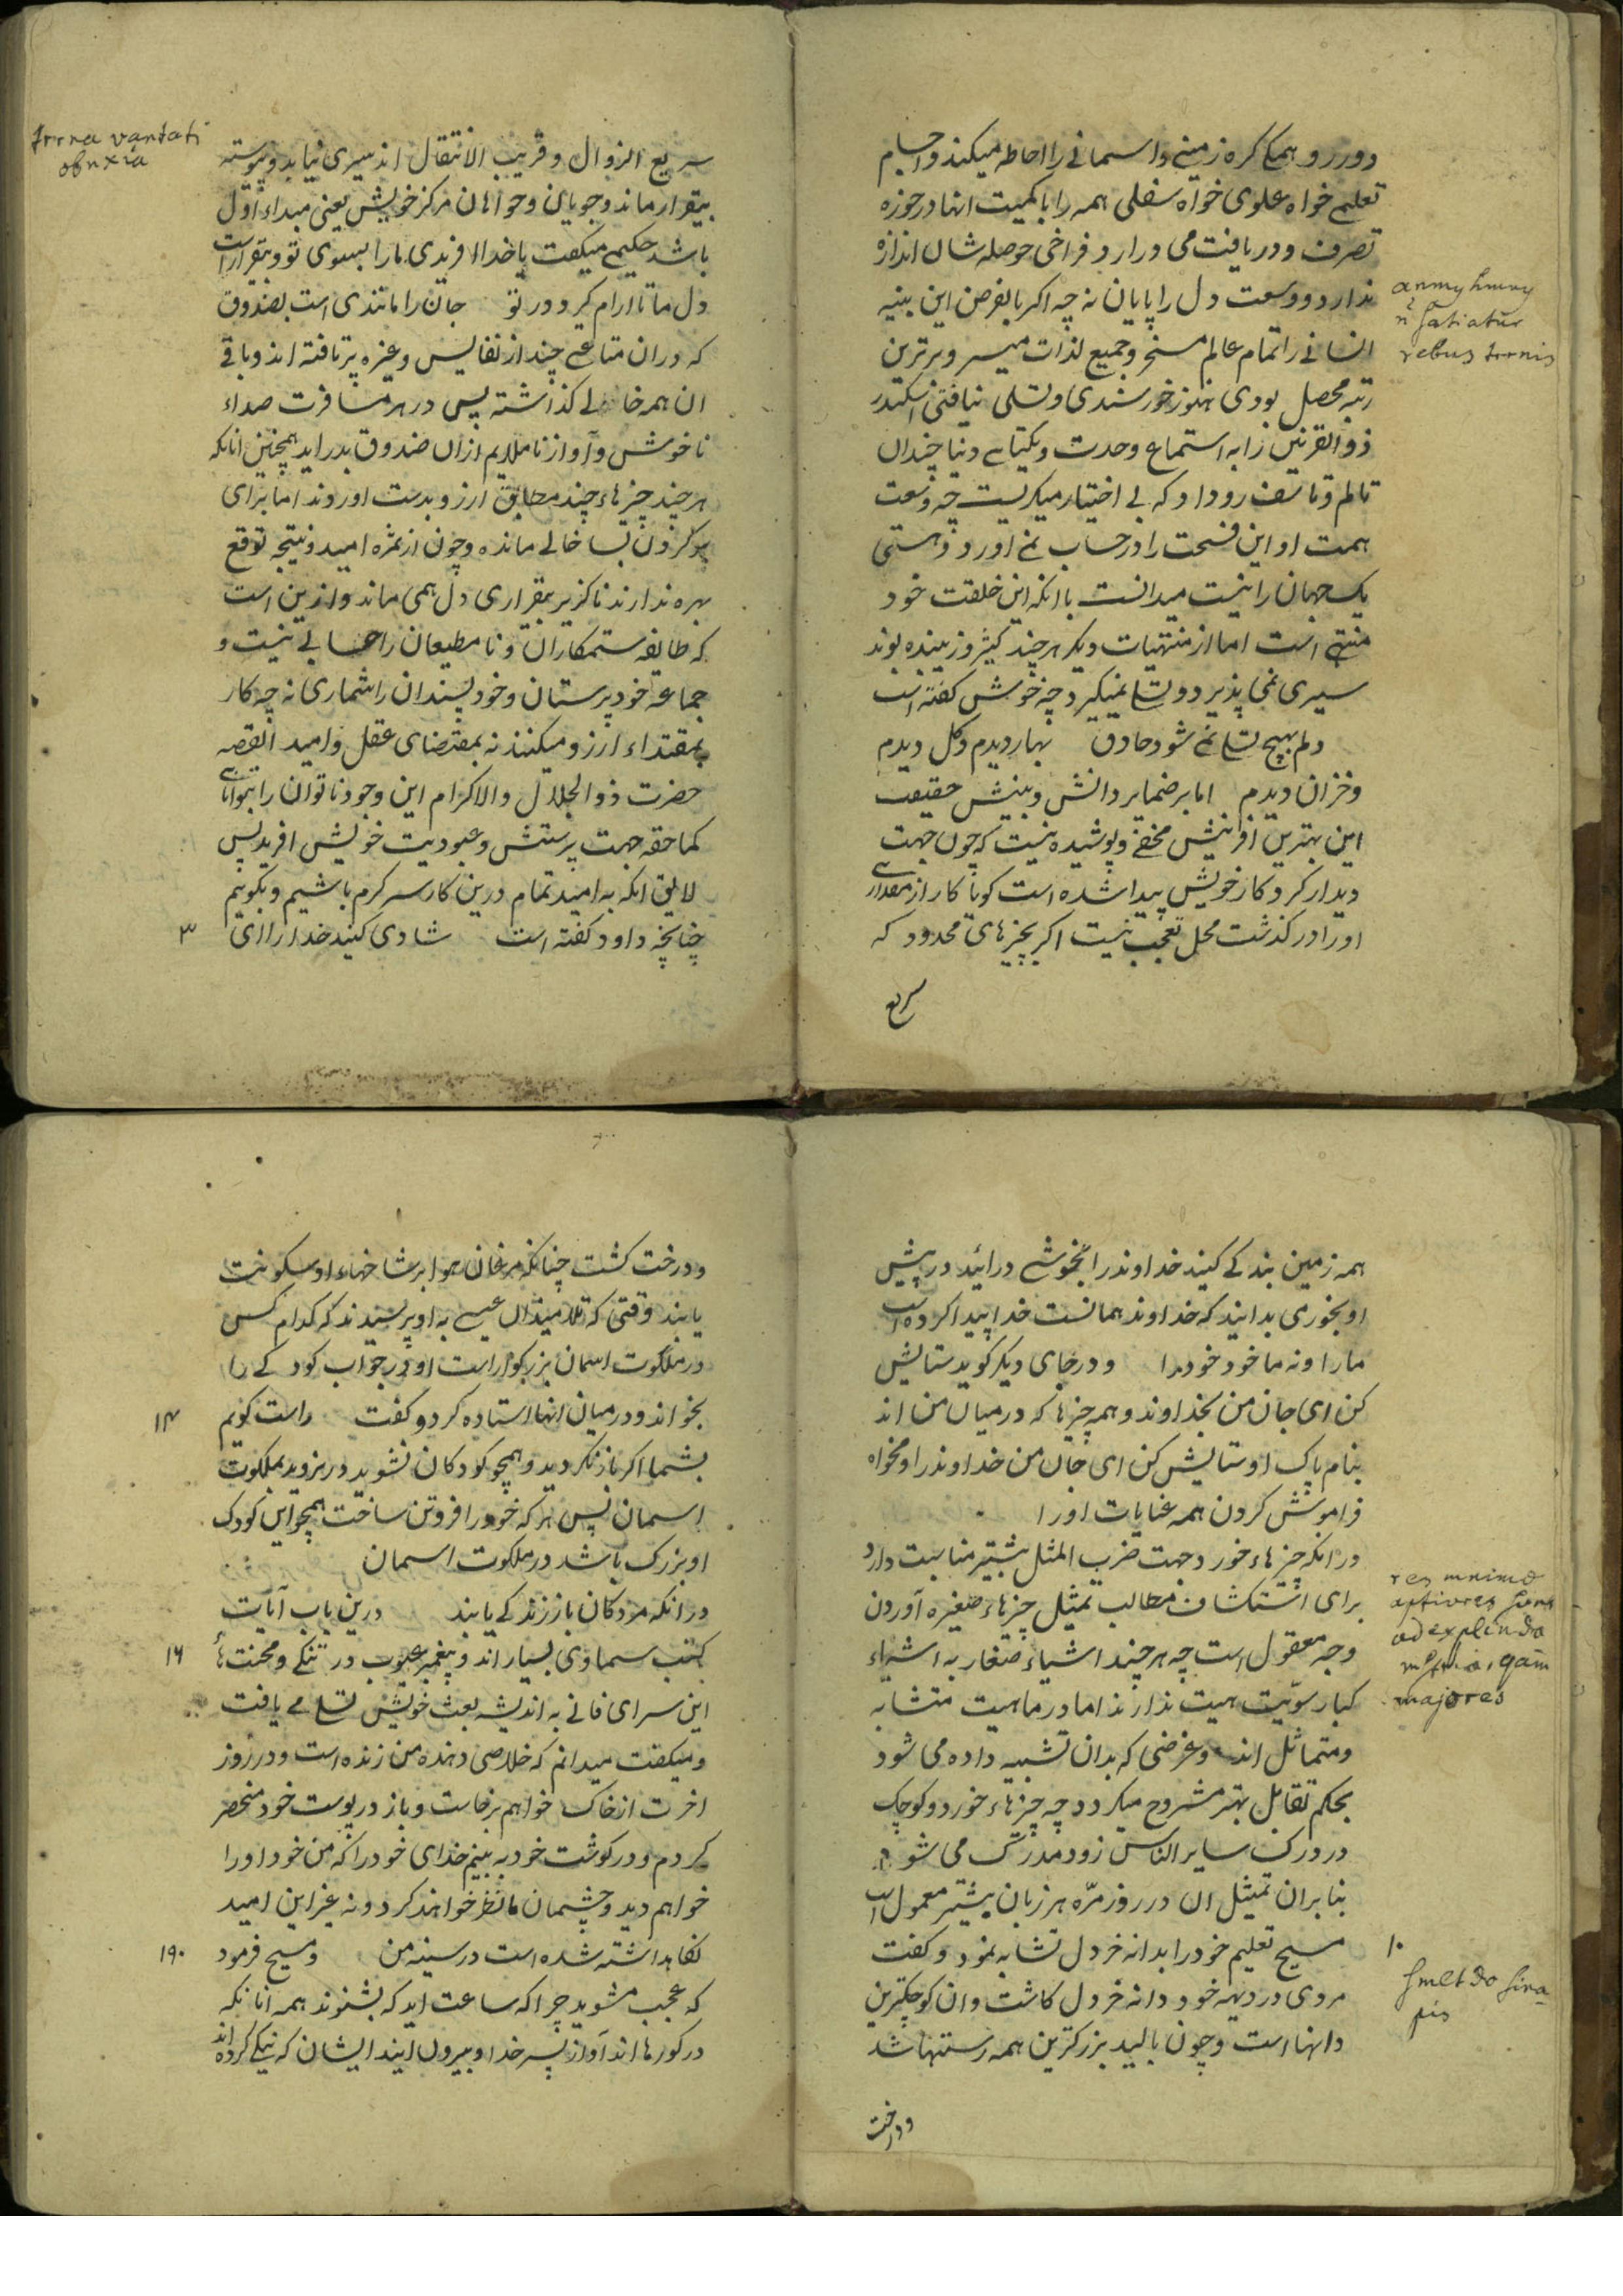 دوررو همکی کره زمینی و اسمانی را احاطه میکند و اجسام
تعلیمی خواه علوی خواه سفلی همه را با کمیت انها در حوزه
تصرف و دریافت می درارد و فراخی حوصله شان اندازه
ندارد و وسعت دل را پایان نه چه اکر بالفرض این بنیه
انسانی را تمام عالم مسخر و جمیع لذات میسر و برترین
رتبه محصل بودی هنوز خورسندی و تسلی نیافتی اسکندر
ذوالقرنین را به استماع وحدت و یکتایی دنیا چندان
تالم و تاسف رو داد که بی اختیار میکریست چه وسعت
همت او این فسحت را در حساب نمی اورد و هستی
یک جهان را نیست میدانست با انکه این خلقت خود
منتهی است اما از منتهیات دیکر هر چند کثیر و زیبنده بوند
سیری نمی پذیرد و تسلی نمیکیرد چه خوش کفته است
دلم بهیچ تسلی نمی شود حاذق بهار دیدم و کل دیدم
و خزان دیدم اما بر ضمایر دانش و بینش حقیقت
این بهترین افرینش مخفی و پوشیده نیست که چون جهت
دیدار کردکار خویش پیدا شده است کویا کار از مقداری
او را در کذشت محل تعجب نیست اکر بچیزهای محدود که
سریع
anmy hmny
n satiatur
rebus trrnis
سریع الزوال و قریب الانتقال اند سیری نیابد و پیوسته
بیقرار ماند و جویان و خواهان مرکز خویش یعنی مبداء اول
باشد حکیمی میکفت یا خدا افریدی مارا بسوی تو و بیقرار است
دل ما تا ارام کیرد در تو جان را مانندی است بصندوق
که دران متاعی چند از نفایس و غیره بر تافته اند و باقی
ان همه خالی کذاشته پس در هر مسافرت صداء
ناخوش و آواز ناملایم ازان صندوق بدر اید همچنین انانکه
هر چند چیزهاء چند مطابق ارزو بدست اوردند اما برای
پر کردن بسا خالی مانده و چون از ثمره امید و نتیجه توقع
بهره ندارند ناکزیر بیقراری دل همی ماند و ازین است
که طایفه ستمکاران و نامطیعان را حسابی نیست و
جماعه خود پرستان و خود پسندان را شماری نه چه کار
بمقتداء ارزو میکنند نه بمقتضای عقل و امید القصه
حضرت ذو الجلال والاکرام این وجود ناتوان را بتوانایی
کماحقه جهت پرستش و عبودیت خویش افرید پس
لایق انکه به امید تمام درین کار سر کرم باشیم و بکوییم
چنانچه داود کفته است شادی کنید خدا را ای
۳
trrna vanitati
obnxia
همه زمین بندکی کنید خداوند را بخوشی درائید در پیش
او بخورمی بدانید که خداوند همانست خدا پیدا کرده است
مارا و نه ما خود خود را و در جای دیکر کوید ستایش
کن ای جان من بخداوند و همه چیزها که در میان من اند
بنام پاک او ستایش کن ای جان من خداوند را و مخواه
فراموش کردن همه عنایات او را
در انکه چیزهاء خورد جهت ضرب المثل بیشتر مناسبت دارد
برای استکشاف مطالب تمثیل چیزهاء صغیره آوردن
وجه معقول است چه هر چند اشیاء صغار به اشیاء
کبار سویّت هیت ندارند اما در ماهیت متشابه
و متماثل اند و غرضی که بدان تشبیه داده می شود
بحکم تقابل بهتر مشروح میکردد چه چیزهاء خورد و کوچک
در درک سایر الناس زود مدرک می شود
بنابران تمثیل ان در روزمرّه هر زبان بیشتر معمول است
مسیح تعلیم خود را بدانه خردل تشابه نمود و کفت
مردی در دیهه خود دانه خردل کاشت وان کوچکترین
دانها است و چون بالید بزرکترین همه رستنیها شد
و درخت
res mnimo
aptiores sunt
ad explindo
majores
۱۰
smlt do sina
pis
و درخت کشت چنانکه مرغان هوا بر شاخهاء او سکونت
یابند وقتی که تلامیذان عیسی به او پرسیدند که کدام کس
در ملکوت اسمان بزرکوار است او در جواب کودکی را
بخواند و در میان انها استاده کرد و کفت راست کویم
بشما اکر باز نکردید و همچو کودکان نشوید در نروید بملکوت
اسمان پس هر که خود را فروتن ساخت همچو این کودک
او بزرک باشد در ملکوت اسمان
در انکه مردکان باز زندکی یابند درین باب آیات
کتب سماوی بسیار اند و پیغمبر عیوب در تنکی و محنت هاء
این سرای فانی به اندیشه بعث خویش تسلی می یافت
و میکفت میدانم که خلاصی دهنده من زنده است و در روز
اخرت از خاک خواهم برخاست و باز در پوست خود منحصر
کردم و در کوشت خود به بینم خدای خود را که من خود او را
خواهم دید و چشمان ما نظر خواهند کرد و نه غیر این امید
نکاهداشته شده است در سینه من و مسیح فرمود
که عجب مشوید چرا که ساعت اید که بشنوند همه انانکه
در کورها اند آواز پسر خدا و بیرون ایند ایشان که نیکی کرده اند
۱۴
۱۶
۱۹۰